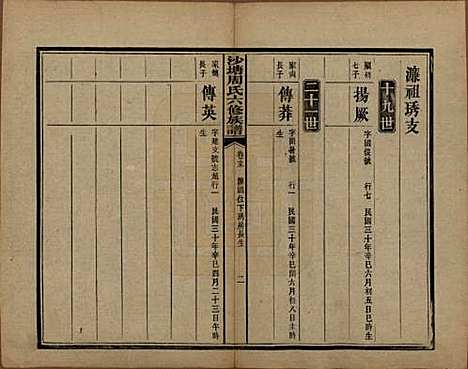 濂祖琇支
十九世
顯初
七子
揚厥
字國俊號 行七 民國三十年辛巳六月初五日巳時生
二十一世
家尚
長子
傳莽
字開暑號 行一 民國三十年辛巳閏六月初八日時生
沙塘周氏六修族譜
二
家德
長子
傳英
字建文號志超行一 民國三十年辛巳四月二十三日午時生